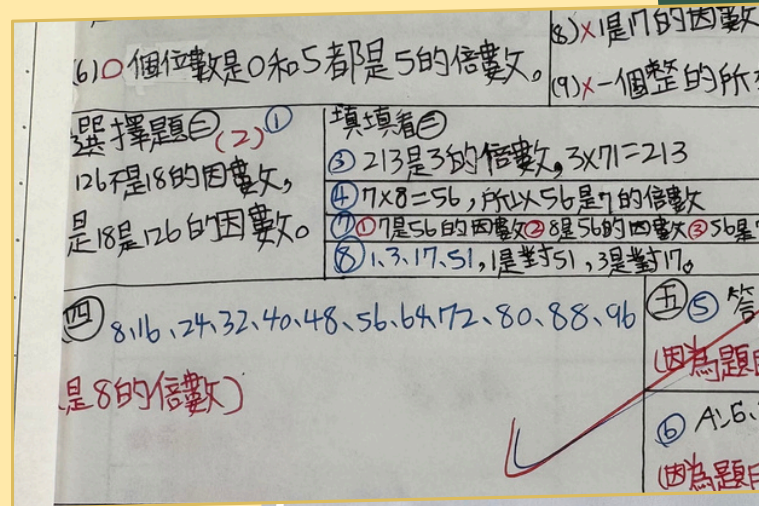 (6)○個位數是0和5都是5的倍數。
(8)×1是17的因數
(9)×一個整的所
選擇題㊂(2)①
126不是18的因數,
是18是126的因數。
填填看㊂
③213是3的倍數,3×71=213
④7×8=56,所以56是7的倍數
⑦①7是56的因數②8是56的因數③56是
⑧1、3、17、51,1是對51,3是對17。
㊃8、16、24、32、40、48、56、64、72、80、88、96
是8的倍數)
㊄⑤答
(因為題
⑥A:6、
(因為題